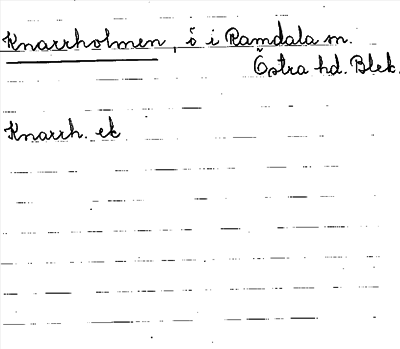 Knarrholmen, ö i Ramdala sn.
Östra hd. Blek.
Knarrh. ek